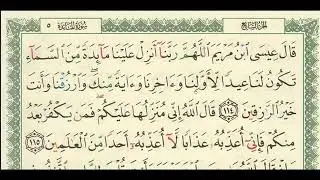 الجزء السابع سورة المائدة ٥
قَالَ عِيسَى ٱبْنُ مَرْيَمَ ٱللَّهُمَّ رَبَّنَآ أَنزِلْ عَلَيْنَا مَآئِدَةً مِّنَ ٱلسَّمَآءِ
تَكُونُ لَنَا عِيدًا لِّأَوَّلِنَا وَءَاخِرِنَا وَءَايَةً مِّنكَ وَٱرْزُقْنَا وَأَنتَ
خَيْرُ ٱلرَّٰزِقِينَ ١١٤ قَالَ ٱللَّهُ إِنِّى مُنَزِّلُهَا عَلَيْكُمْ فَمَن يَكْفُرْ بَعْدُ
مِنكُمْ فَإِنِّىٓ أُعَذِّبُهُۥ عَذَابًا لَّآ أُعَذِّبُهُۥٓ أَحَدًا مِّنَ ٱلْعَٰلَمِينَ ١١٥